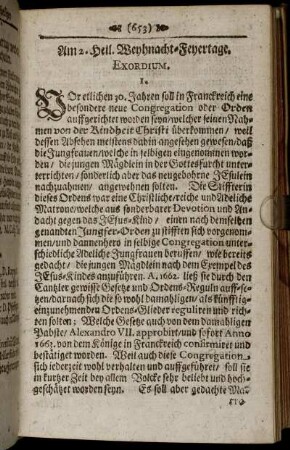 (653)
Am 2. Heil. Weyhnacht-Feyertage.
EXORDIUM.
1.
VOr etlichen 30. Jahren soll in Franckreich eine
besondere neue Congregation oder Orden
auffgerichtet worden seyn/welcher seinen Nah-
men von der Kindheit Christi überkommen / weil
dessen Absehen meistens dahin angesehen gewesen/daß
die Jungfrauen/welche in selbigen eingenommen wor-
den / die jungen Mägdlein in der Gottesfurcht unter-
terrichten/ sonderlich aber das neugebohrne JEsulein
nachzuahmen / angewehnen solten. Die Stiffterin
dieses Ordens war eine Christliche/reiche und Adeliche
Matron/welche aus sonderbarer Devotion und An-
dacht gegen das JEsus-Kind / einen nach demselben
genandten Jungfer-Orden zustifften sich vorgenom-
men/und dannenhero in selbige Congregation unter-
schiedliche Adeliche Jungfrauen beruffen/ wie bereits
gedacht/ die jungen Mägdlein nach dem Exempel des
JEsus-Kindes anzuführen. A. 1662. ließ sie durch den
Cantzler gewisse Gesetz und Ordens-Reguln auff-se-
tzen/darnach sich die so wohl damahligen/ als künfftig-
einzunehmenden Ordens-Glieder reguliren und rich-
ten solten: Welche Gesetz auch von dem damahligen
Pabste/ Alexandro VII. approbirt/und sofort Anno
1663. von dem Könige in Franckreich confirmiret und
bestätiget worden. Weil auch diese Congregation
sich iederzeit wohl verhalten und auffgeführet/ soll sie
in kurtzer Zeit bey allem Volcke sehr beliebt und hoch-
geschätzet worden seyn. Es soll aber gedachte Ma-
tro-